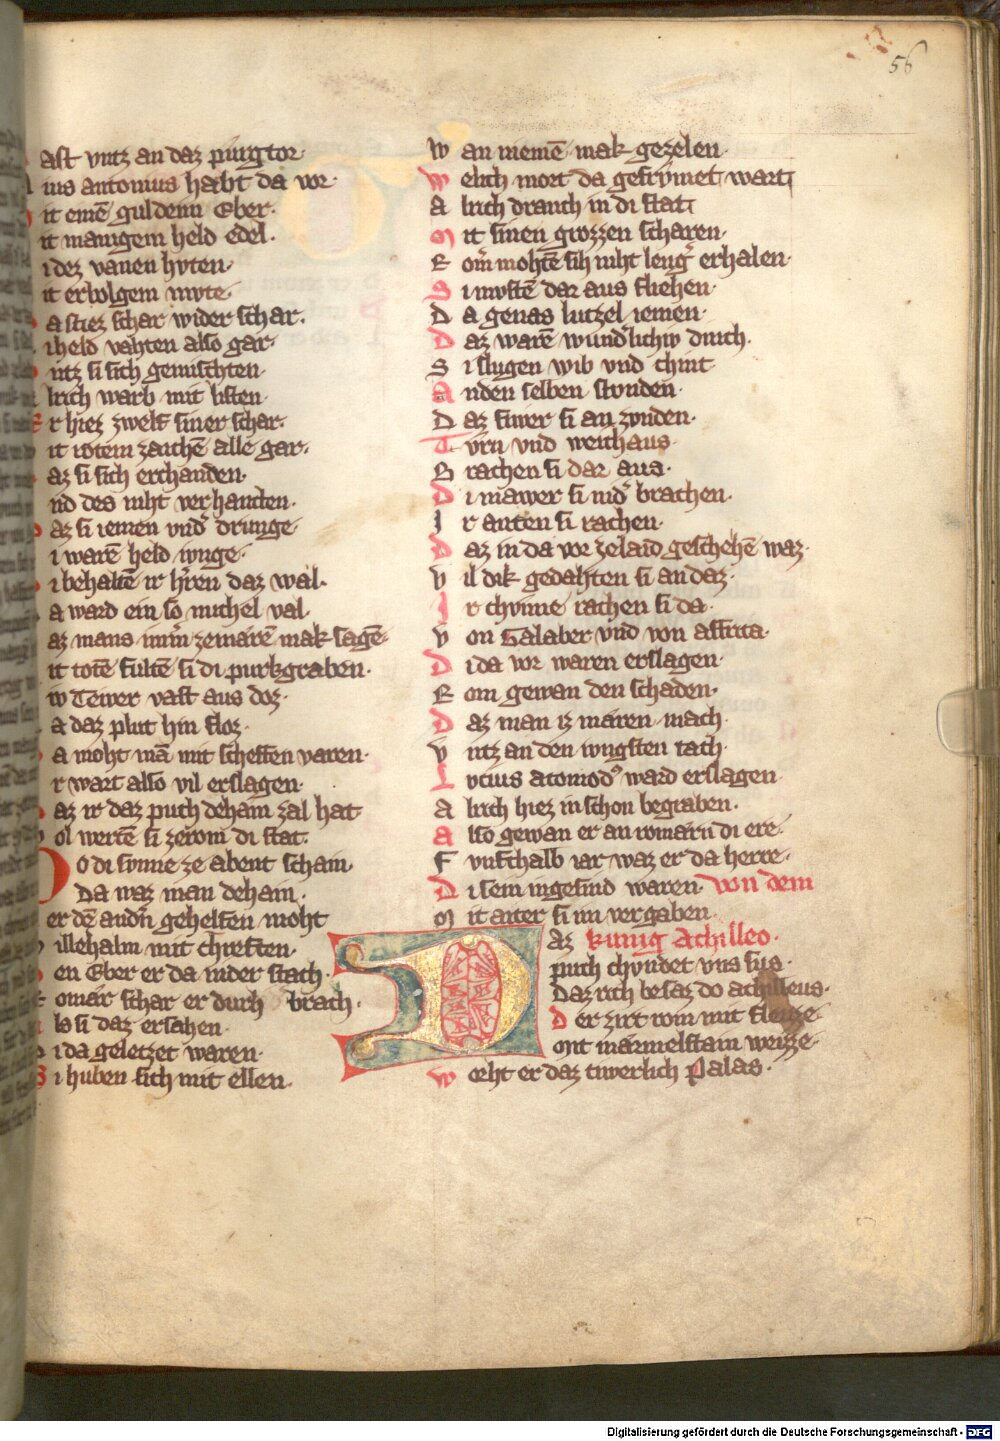 56
ast vntz an daz puͤrgtor
ius antonius habt da vor·
it emē guldeniu Eber·
it manigem held edel·
idez vanen hvten·
it erbolgem mvte·
a stiez schar wider schar·
iheld vahten also gar·
ntz si sich gemischten·
lrich warb mit listen·
r hiez zwelf siner schar·
it rotem zaichē alle gar·
az si sich erchanden·
nd des niht verhanden·
az si iemen vnd͛ drunge
i warē held ivnge·
i behaltē ir h͛ren daz wal·
a ward ein so michel val·
az mans zemarē mak sagē·
it totē fultē si di purkgraben·
iv Tewer vast aus doz·
a daz plut hin floz·
a moht mā mit scheffen varen·
r wart also vil erslagen·
az ir daz puch dehain zal hat
ol wertē si zerom di stat·
Do di svnne ze abent schain·
Da waz man deham·
er dē and͛n gehelfen moht
illehalm mit chreften·
en Eber er da nider stach·
omar schar er durh brach·
ls si daz ersahen·
i da geletzet waren·
Si huben sich mit ellen·
W an niemē mak gezelen·
W elich mort da gefrvmet wart
A lrich drauch in di stat
M it sinen grozzen scharen·
R om͛ mohtē sih niht leng͛ erhalen·
S i mvstē dar aus fliehen·
D a genas lutzel iemen·
D az warē wund͛lichiv dinch·
S i slugen wib vnd chint·
A nden selben stvnden·
D az fiwer si an zvnden·
T vrn vnd weichaus·
B rachen si dar aus·
D i mawer si nid͛ brachen·
I r anten si rachen·
D az in da vor zelaid geschehē waz·
V il dik gedahten si an daz·
I r chvnne rachen si da·
V on Galaber vnd von affrica·
D i da vor waren erslagen·
R om gewan den schaden·
D az man iz maren mach·
V ntz an den ivngsten tach·
L vcius atomod᾽ ward erslagen·
A lrich hiez in schon begraben·
A lso gewan er an romarn di ere·
F vnfthalb iar waz er da herre·
D i sein ingesind waren· Von dem
M it aiter si im vergaben· kunig Achilleo·
Daz puch chvndet vns sus·
Daz rich besaz do achilleus·
D er zirt rom mit fleizze·
Mit marmelstain weizze·
W orht er daz tiwerlich Palas·
Digitalisierung gefördert durch die Deutsche Forschungsgemeinschaft - DFG